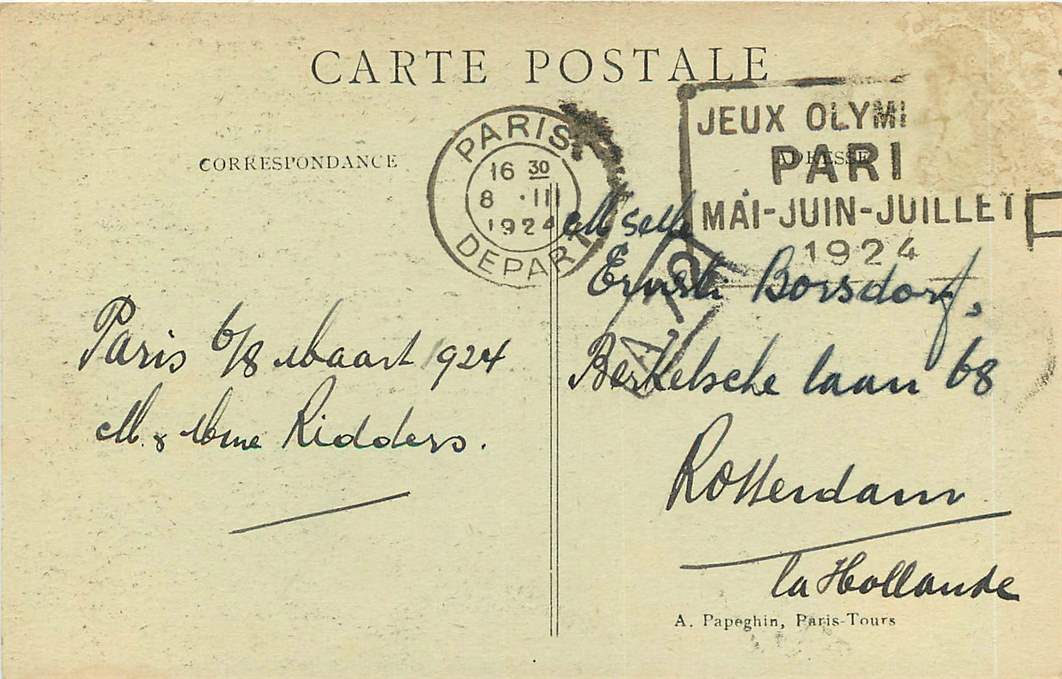 CARTE POSTALE
CORRESPONDANCE
ADRESSE
PARIS
16 30
8 · III
1924
DEPART
JEUX OLYMI
PARI
MAI-JUIN-JUILLET
1924
Paris 6/8 Maart 1924
M. & Mme Ridders.
Borsdorf,
Berkelsche laan 68
Rotterdam
la Hollande
A. Papeghin, Paris-Tours